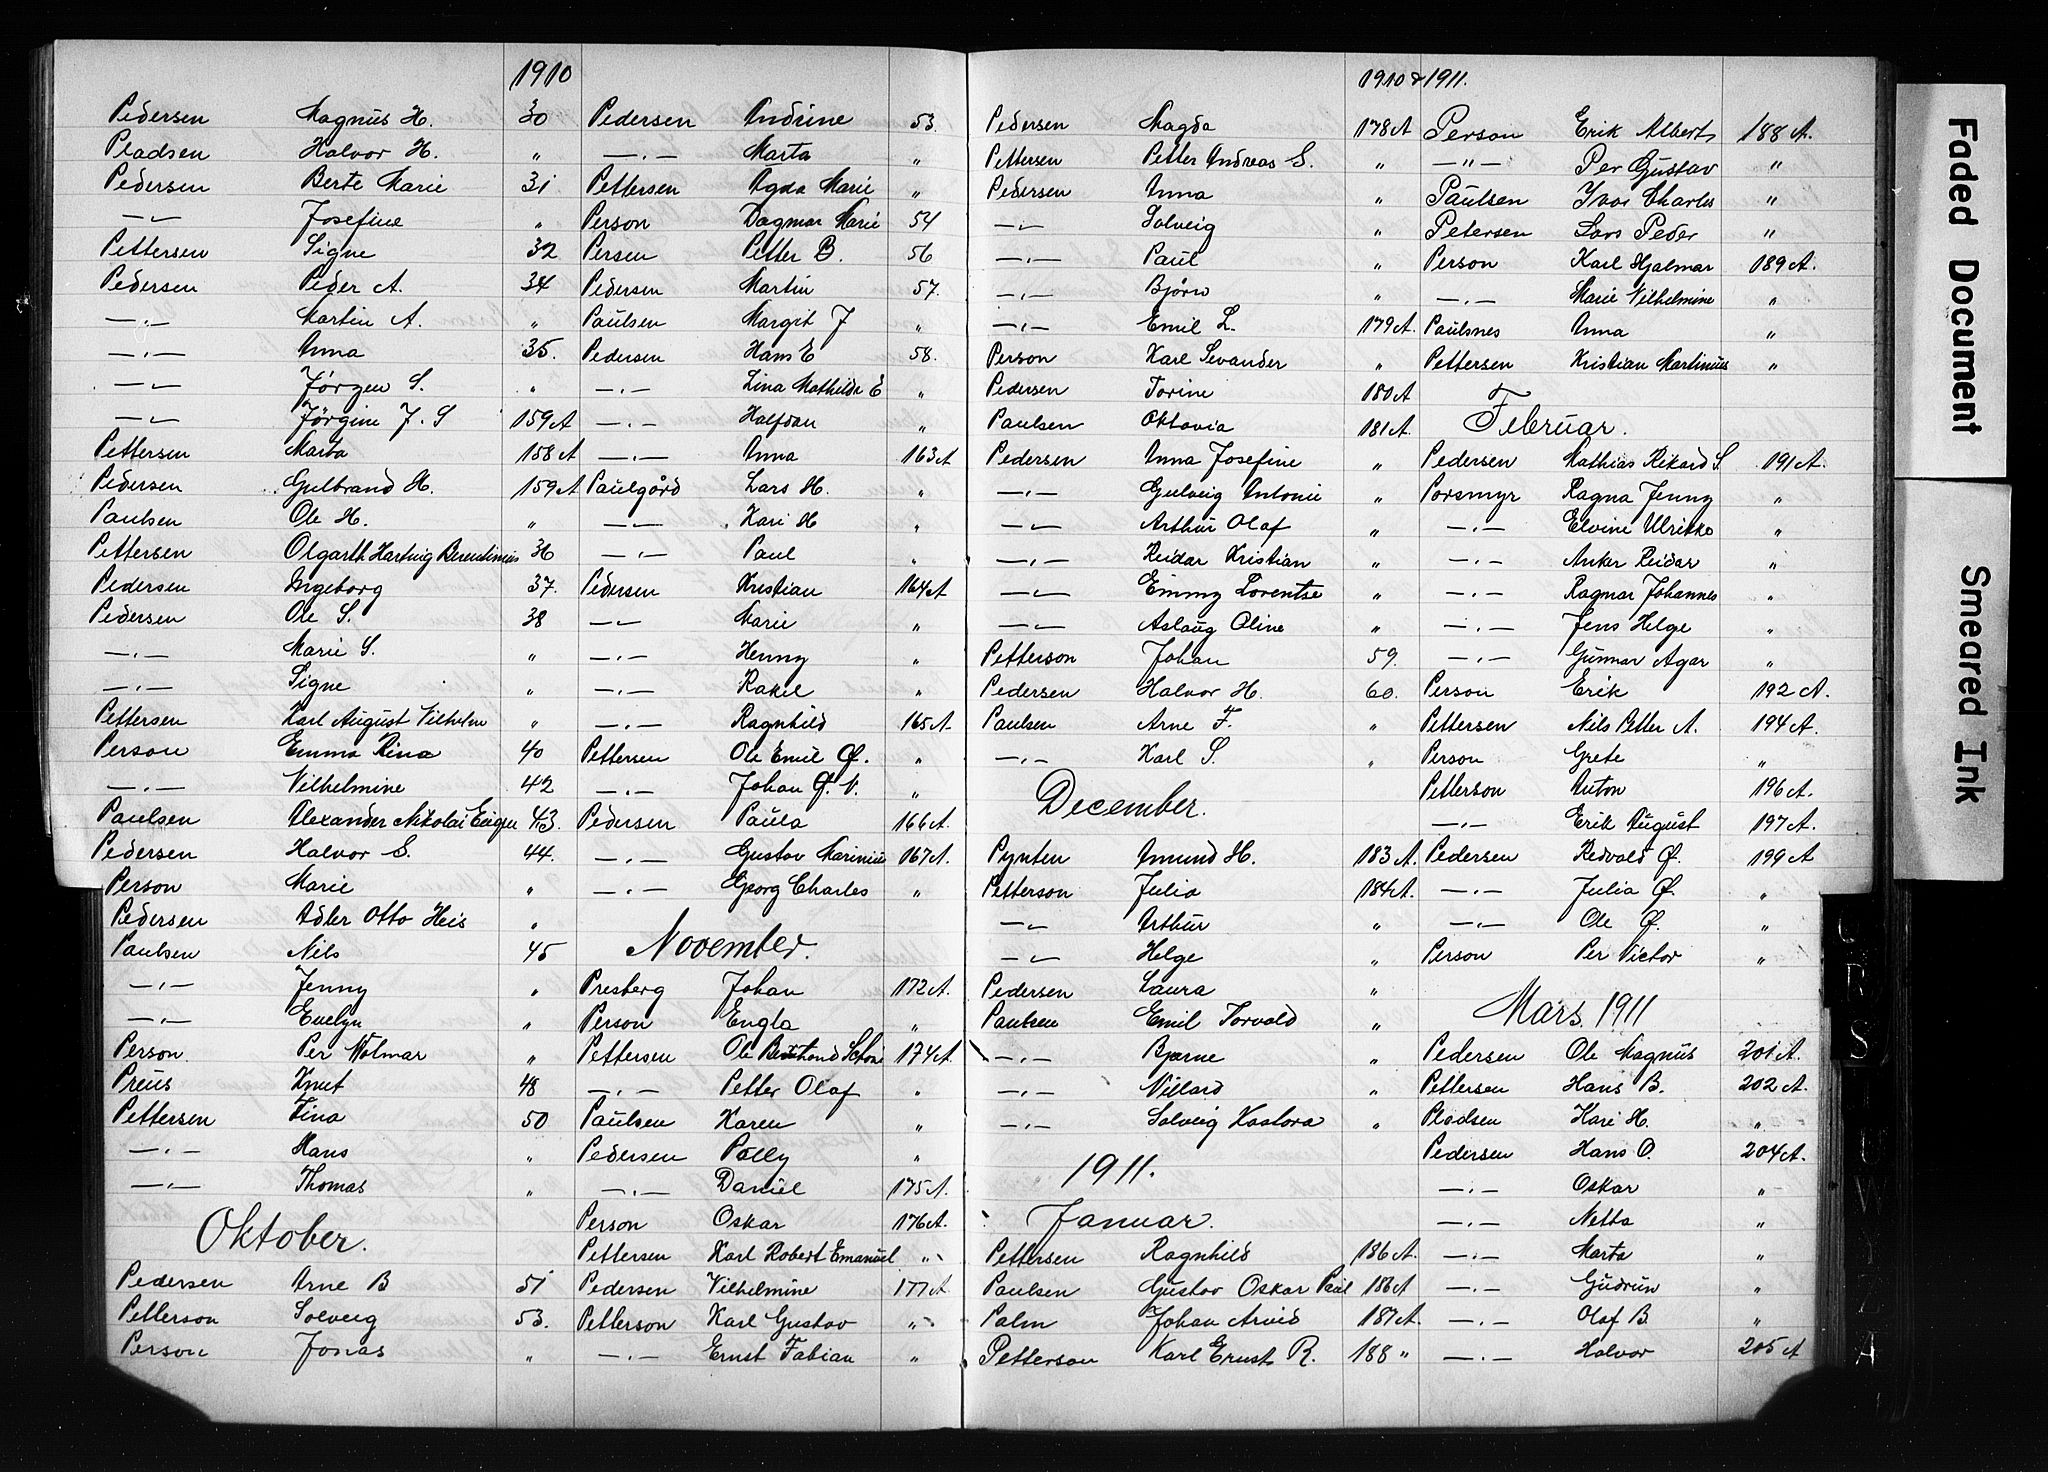 1910
Pedersen Magnus H. 30
Pladsen Halvor H. "
Pedersen Berte Marie 31
—"— Josefine "
Pettersen Signe 32
Pedersen Peder A. 34
—"— Martin A. "
—"— Anna 35.
—"— Jørgen S. "
—"— Jørgine J. S 159 A
Pettersen Marta 158 A
Pedersen Gulbrand H. 159 A
Paulsen Ole H. "
Pettersen Olgarth Hartvig Berentinius 36
Pedersen Ingeborg 37.
Pedersen Ole S. 38
—"— Marie S. "
—"— Signe "
Pettersen Karl August Vilhelm "
Person Emma Rina 40
—"— Vilhelmine 42
Paulsen Alexander Nikolai 43.
Pedersen Halvor S. 44.
Person Marie "
Pedersen Adler Otto Heis "
Paulsen Nils 45
—"— Jenny "
—"— Evelyn "
Person Per Wolmar "
Preus Knut 48
Pettersen Fina 50
—"— Hans "
—"— Thomas "
Oktober.
Pedersen Arne B 51
Petterson Solveig 53.
Person Jonas "
Pedersen Andrine 53.
—"— Marta "
Pettersen Agda Marie "
Person Dagmar Marie 54
Persen Petter B. 56
Pedersen Martin 57.
Paulsen Margit J "
Pedersen Hans E 58.
—"— Lina Mathilde E "
—"— Halfdan "
—"— Anna 163 A
Paulgård Lars H. "
—"— Kari H "
—"— Paul "
Pedersen Kristian 164 A
—"— Marie "
—"— Henny "
—"— Rakel "
—"— Ragnhild 165 A
Pettersen Ole Emil Ø. "
—"— Johan Ø. V. "
Pedersen Paula 166 A.
—"— Gustav Marinius 167 A.
—"— Georg Charles "
November.
Presberg Johan 172 A.
Person Engla "
Pettersen Ole 174 A.
—"— Petter Olaf "
Paulsen Karen "
Pedersen Polly "
—"— Daniel 175 A.
Person Oskar 176 A.
Pettersen Karl Robert Emanuel "
Pedersen Vilhelmine 177 A
Petterson Karl Gustav "
—"— Ernst Fabian "
1910 & 1911.
Pedersen Magda 178 A
Pettersen Petter Andreas S. "
Pedersen Anna "
—"— Solveig "
—"— Paul "
—"— Bjørn "
—"— Emil L. 179 A.
Person Karl Sevander "
Pedersen Torine 180 A
Paulsen Oktavia 181 A.
Pedersen Anna Josefine "
—"— Gulveig Antonie "
—"— Arthur Olaf "
—"— Reidar Kristian "
—"— Emmy Lorentse "
—"— Aslaug Oline "
Petterson Johan 59.
Pedersen Halvor H. 60.
Paulsen Arne F. "
—"— Karl S. "
December.
Pynten Amund H. 183 A.
Petterson Julia 184 A.
—"— Arthur "
—"— Helge "
Pedersen Laura "
Paulsen Emil Torvald "
—"— Bjarne "
—"— Villard "
—"— Solveig Kaslora "
1911.
Januar.
Pettersen Ragnhild 186 A.
Paulsen Gustav Oskar Paul 186 A
Palm Johan Arvid 187 A.
Petterson Karl Ernst R. 188 "
Person Erik Albert 188 A.
—"— Per Gustav "
Paulsen Ivar Charles "
Petersen Lars Peder "
Person Karl Hjalmar 189 A.
—"— Marie Vilhelmine "
Paulsnes Anna "
Pettersen Kristian Martinius "
Februar.
Pedersen Mathias Rikard S. 191 A.
Porsmyr Ragna Jenny "
—"— Elvine Ulrikke "
—"— Anker Reidar "
—"— Ragnar Johannes "
—"— Jens Helge "
—"— Gunnar Agar "
Person Erik 192 A.
Pettersen Nils Petter A. 194 A.
Person Grete "
Petterson Anton 196 A.
—"— Erik August 197 A.
Pedersen Redvald Ø. 199 A
—"— Julia Ø. "
—"— Ole Ø. "
Person Per Victor "
Mars 1911
Pedersen Ole Magnus 201 A.
Pettersen Hans B. 202 A.
Pladsen Kari H. "
Pedersen Hans O. 204 A.
—"— Oskar "
—"— Netta "
—"— Marta "
—"— Gudrun "
—"— Olaf B. "
—"— Halvor 205 A
Faded Document
Smeared Ink